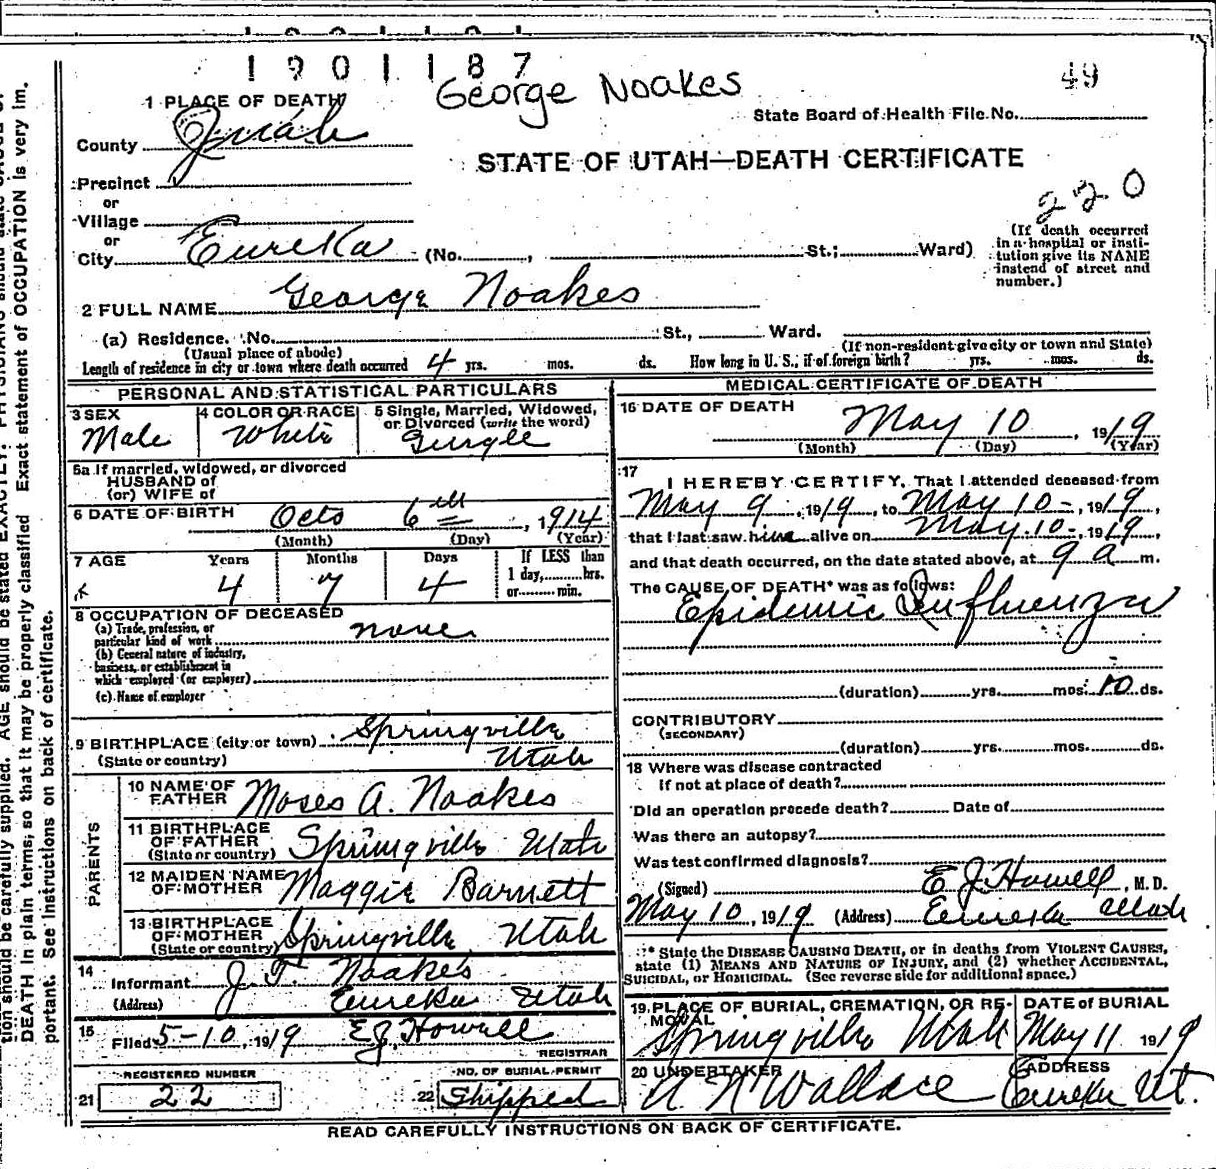 1901187
George Noakes
49
1 PLACE OF DEATH
State Board of Health File No.
County Juab
STATE OF UTAH—DEATH CERTIFICATE
Precinct
or
Village
or
City Eureka (No. , St.; Ward)
220
(If death occurred
in a hospital or insti-
tution give its NAME
instead of street and
number.)
2 FULL NAME George Noakes
(a) Residence. No. St., Ward.
(Usual place of abode)
(If non-resident give city or town and State)
Length of residence in city or town where death occurred 4 yrs. mos. ds. How long in U. S., if of foreign birth? yrs. mos. ds.
PERSONAL AND STATISTICAL PARTICULARS
3 SEX
Male
4 COLOR OR RACE
White
5 Single, Married, Widowed,
or Divorced (write the word)
5a If married, widowed, or divorced
HUSBAND of
(or) WIFE of
6 DATE OF BIRTH Octo 6th, 1914
(Month) (Day) (Year)
7 AGE Years Months Days If LESS than
4 7 4 1 day,........hrs.
or........min.
8 OCCUPATION OF DECEASED
(a) Trade, profession, or
particular kind of work none
(b) General nature of industry,
business, or establishment in
which employed (or employer)
(c) Name of employer
9 BIRTHPLACE (city or town) Springville
(State or country) Utah
PARENTS
10 NAME OF
FATHER Moses A. Noakes
11 BIRTHPLACE
OF FATHER
(State or country) Springville Utah
12 MAIDEN NAME
OF MOTHER Maggie Barnett
13 BIRTHPLACE
OF MOTHER
(State or country) Springville, Utah
14
Informant J. T. Noakes
(Address) Eureka Utah
15
Filed 5-10, 1919 E J. Howell
REGISTRAR
REGISTERED NUMBER
21 22
NO. OF BURIAL PERMIT
22 Shipped
MEDICAL CERTIFICATE OF DEATH
16 DATE OF DEATH
May 10, 1919
(Month) (Day) (Year)
17
I HEREBY CERTIFY, That I attended deceased from
May 9, 1919, to May 10-, 1919,
that I last saw him alive on May 10-, 1919,
and that death occurred, on the date stated above, at 9 a m.
The CAUSE OF DEATH* was as follows:
Epidemic Influenza
(duration) yrs. mos. 10 ds.
CONTRIBUTORY
(SECONDARY)
(duration) yrs. mos. ds.
18 Where was disease contracted
if not at place of death?
Did an operation precede death? Date of
Was there an autopsy?
Was test confirmed diagnosis?
(Signed) E J. Howell, M. D.
May 10, 1919 (Address) Eureka Utah
* State the DISEASE CAUSING DEATH, or in deaths from VIOLENT CAUSES,
state (1) MEANS AND NATURE OF INJURY, and (2) whether ACCIDENTAL,
SUICIDAL, or HOMICIDAL. (See reverse side for additional space.)
19 PLACE OF BURIAL, CREMATION, OR RE-
MOVAL
Springville Utah
DATE OF BURIAL
May 11 1919
20 UNDERTAKER
A N Wallace
ADDRESS
Eureka Ut.
READ CAREFULLY INSTRUCTIONS ON BACK OF CERTIFICATE.
tion should be carefully supplied. AGE should be stated EXACTLY. PHYSICIANS should state CAUSE OF
DEATH in plain terms, so that it may be properly classified. Exact statement of OCCUPATION is very im.
portant. See instructions on back of certificate.